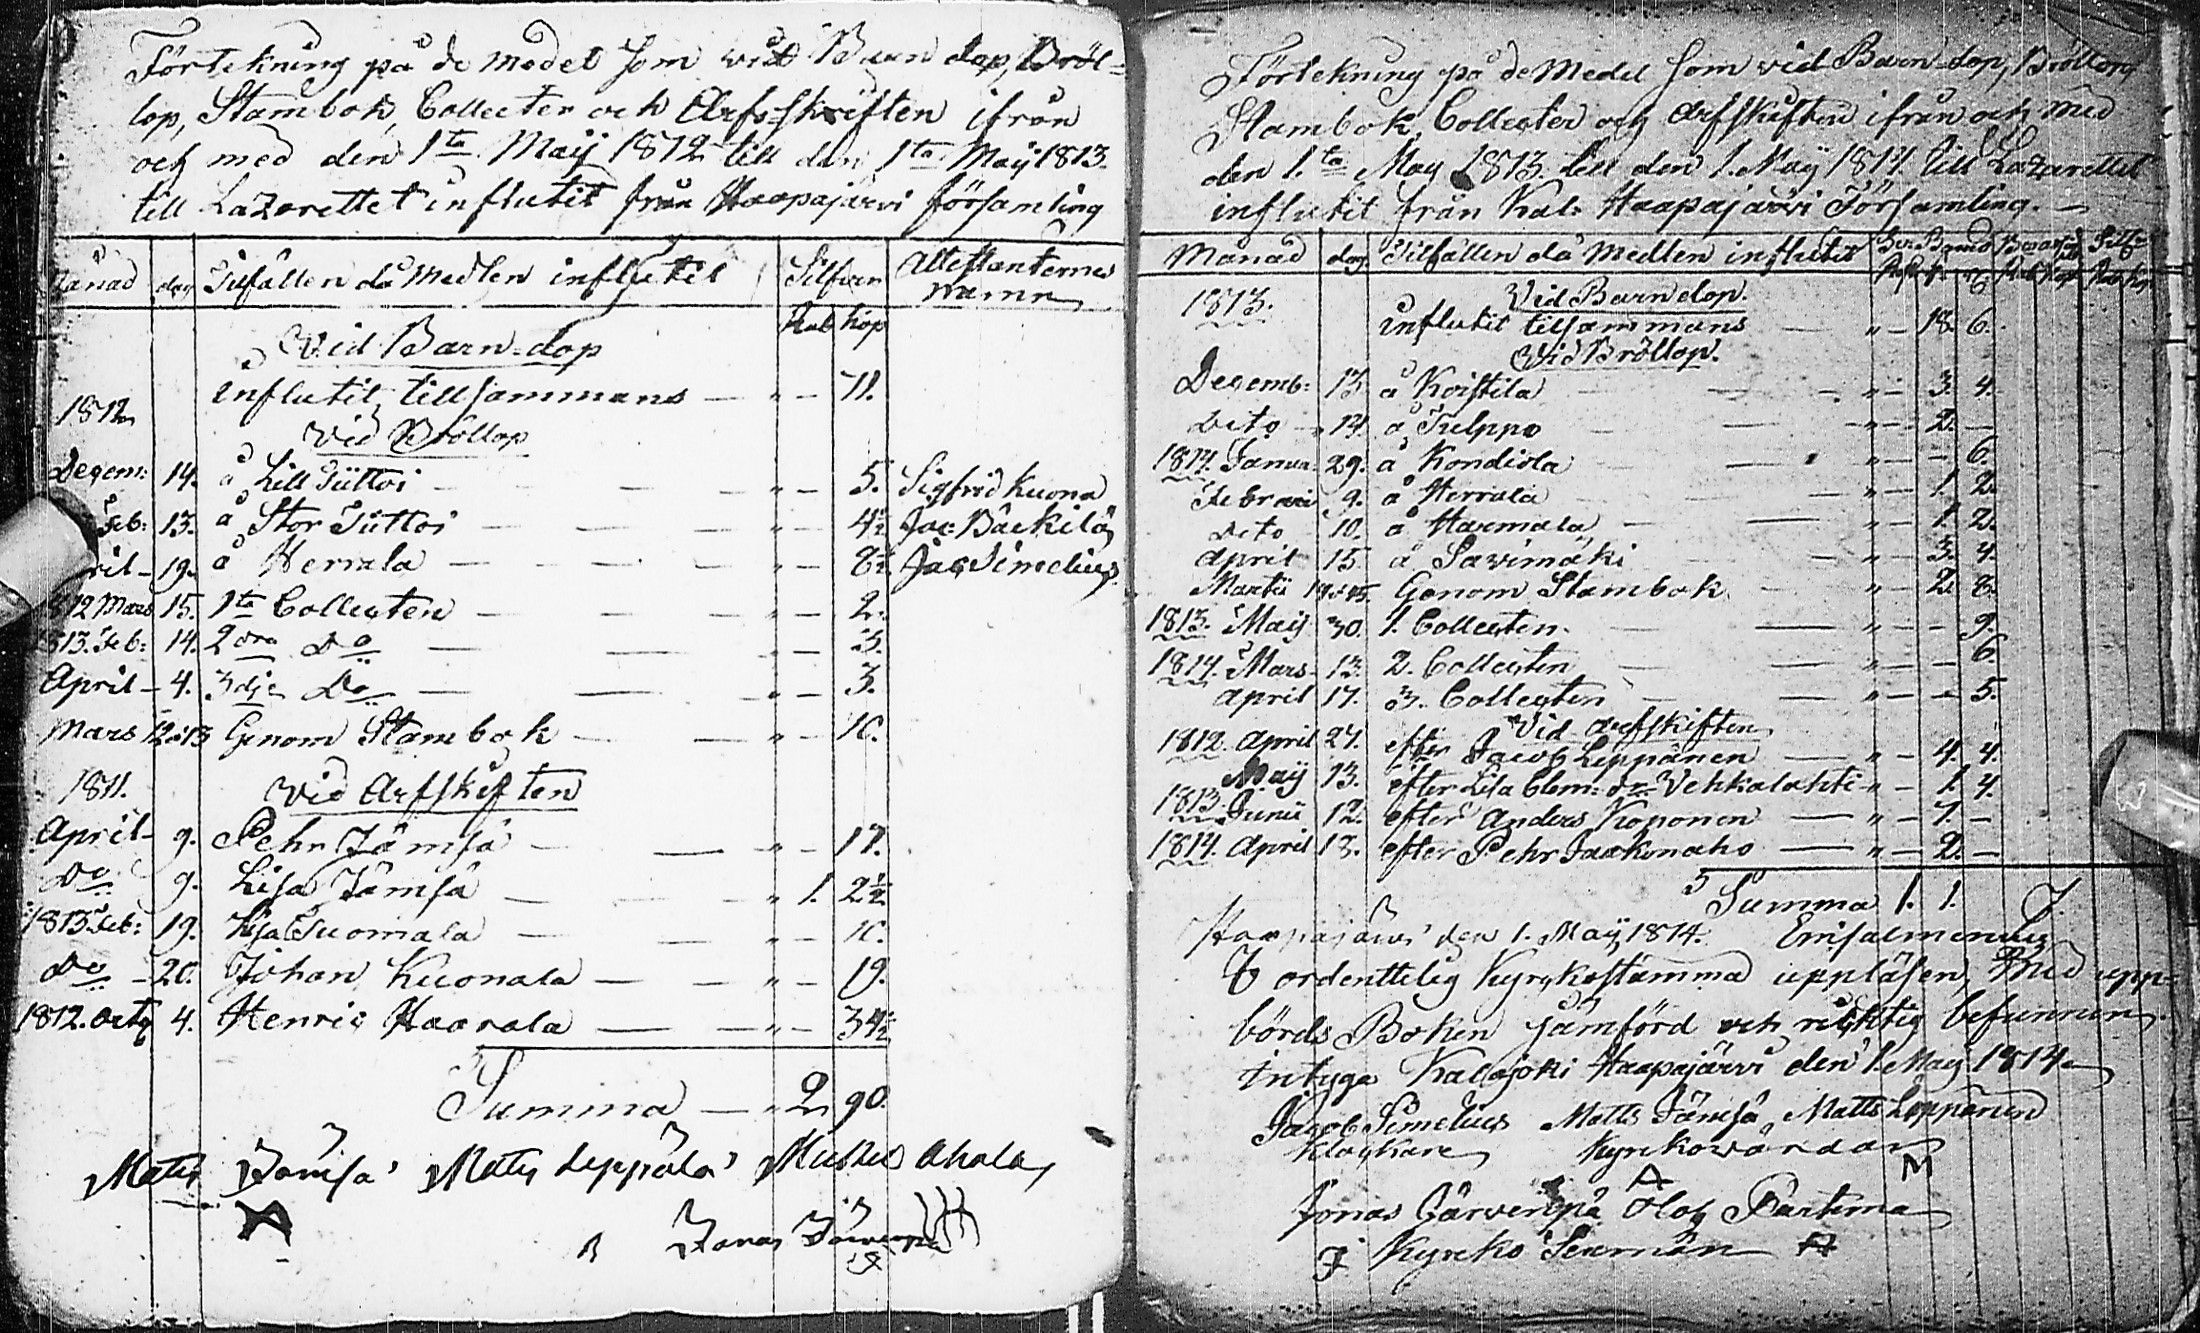 Förtekning på de medel som vid Barn dop, Bröl-
lop, Stambok, Collecter och Arfsskiften ifrån
och med den 1ta Maÿ 1812 till den 1ta Maÿ 1813.
till Lazarettet influtit från Haapajärvi församling
Månad dag Tilfällen då Medlen influtit Silfver Attestanternes
namn
Rub kop
Vid Barn-dop
influtit tillsammans — " — 11.
1812
Vid Bröllop
Decem: 14. å Lill Tüttoi — " — 5. Sigfrid Kuona
Feb: 13. å Stor Tüttoi — " — 4½ Jac: Bäckilä
April — 19. å Herrala — " — Jac Simelius
1812 Mars 15. 1ta Collecten — " — 2.
1813. Feb: 14. 2dra Do — " — 3.
April — 4. 3dje Do — " — 3.
Mars 12 o 13 Genom Stambok — " — 10.
1811. Vid Arfskiften
April — 9. Pehr Jämsä — " — 17.
Do 9. Lisa Jämsä — " 1. 2½
1813. Feb: 19. Lisa Suomala — " — 10.
Do — 20. Johan Kuonala — " — 19.
1812. Octb 4. Henric Haarala — " — 34½
Summa — " 2 90.
Mats Jämsä Mats Leppälä Michel Ahola
Jonas Järvenpä
Förtekning på de Medel som vid Barn-dop, Bröllop
Stambok, Collecter och Arfskiften ifrån och med
den 1.ta May 1813. till den 1. Maÿ 1814. till Lazarettet
influtit från Kal: Haapajärvi Församling. —
Månad dag Tilfällen då Medlen influtit
1813. Vid Barn dop.
influtit tilsammans — " — 18. 6.
Vid Bröllop.
Decemb: 13. å Koistila — " — 3. 4.
Dito — 14. å Tulppo — " — 2. —
1814. Januar. 29. å Kondiola — " — — 6.
Februari 9. å Herrala — " — 1. 2.
Dito 10. å Harmala — " — 1. 2.
April 15. å Savimäki — " — 3. 4.
Martii 14 o 15. Genom Stambok — " — 2. 8.
1813. Maÿ 30. 1. Collecten — " — — 9.
1814. Mars — 13. 2. Collecten — " — — 6.
April 17. 3. Collecten — " — — 5.
Vid arfskiften
1812 April 27. efter Jacob Leppänen — " — 4. 4.
Maÿ 13. efter Lisa Clem: dr Vehkalahti — " — 1. 4.
1813 Junii 12. efter Anders Koponen — " — 1. —
1814. April 13. efter Pehr Jaakonaho — " — 2. —
Summa 1. 1. 7.
Haapajärvi den 1. Maÿ 1814.
I ordenttelig Kyrkostämma uppläsen, Med upp-
börds Boken jämförd och ricktig befunnen
intyga Kalajoki Haapajärvi den 1. May 1814
Jacob Simelius Matts Jämsä Matts Leppänen
Klockare Kyrckovärdar
M
Jonas Järvenpä Olof Pärttima
Kyrcko Sexmän